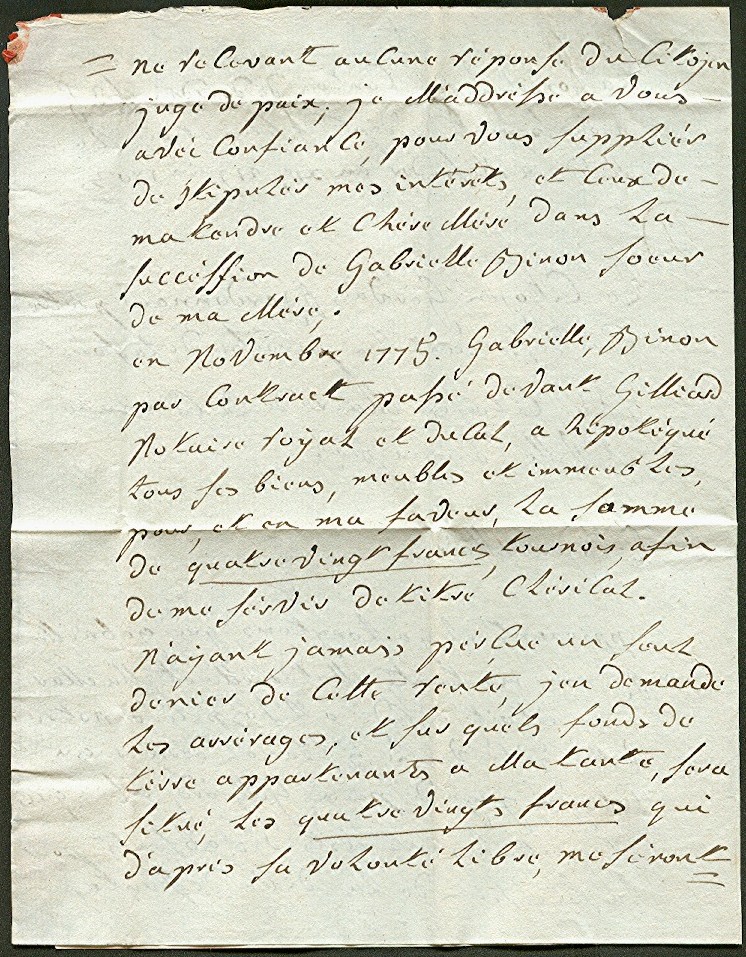 = ne recevant aucune réponse du Citojen
juge de paix, je M'addrésse a vous –
avéc Confiance, pour vous suppliér
de stipulér mes intérêts, et Ceux de –
ma tendre et Chére Mére dans la –
succéssion de Gabrielle Binon soeur
de ma Mére,.
en Novembre 1775. Gabrielle, Binon
par Contract passé devant Gilliard
Notaire royal et ducal, a hÿpotéqué
tous ses biens, meubles et immeubles,
pour, et en ma faveur, la somme
de quatre vingt francs, tournois, afin
de me sérvir de titre Clérical.
N'ayant jamais pérçue un, seul
denier de Cette rente, j'en demande
les arrérages, et sur quéls fonds de
térre appartenants a Ma tante, sera
situé, les quatre vingts francs qui
d'aprés sa volonté libre, me séront =